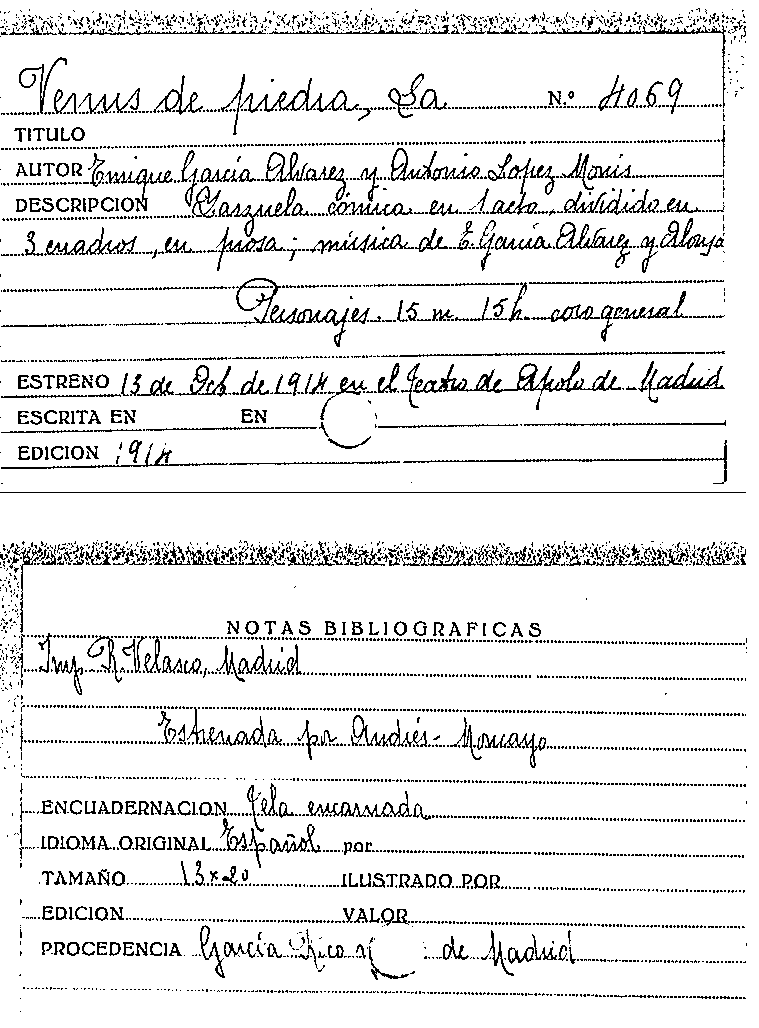 Venus de piedra, La Nº 4069
TITULO
AUTOR Enrique García Alvarez y Antonio Lopez Monis
DESCRIPCION Zarzuela cómica en 1 acto, dividido en
3 cuadros, en prosa; música de E. García Alvarez y Alonso
Personajes. 15 m. 15 h. coro general
ESTRENO 13 de Oct de 1914 en el teatro de Apolo de Madrid
ESCRITA EN EN
EDICION 1914
NOTAS BIBLIOGRAFICAS
Imp R. Velasco, Madrid
Estrenada por Andrés - Moncayo
ENCUADERNACION Tela encarnada
IDIOMA ORIGINAL Español por
TAMAÑO 13x20 ILUSTRADO POR
EDICION VALOR
PROCEDENCIA García Rico y de Madrid